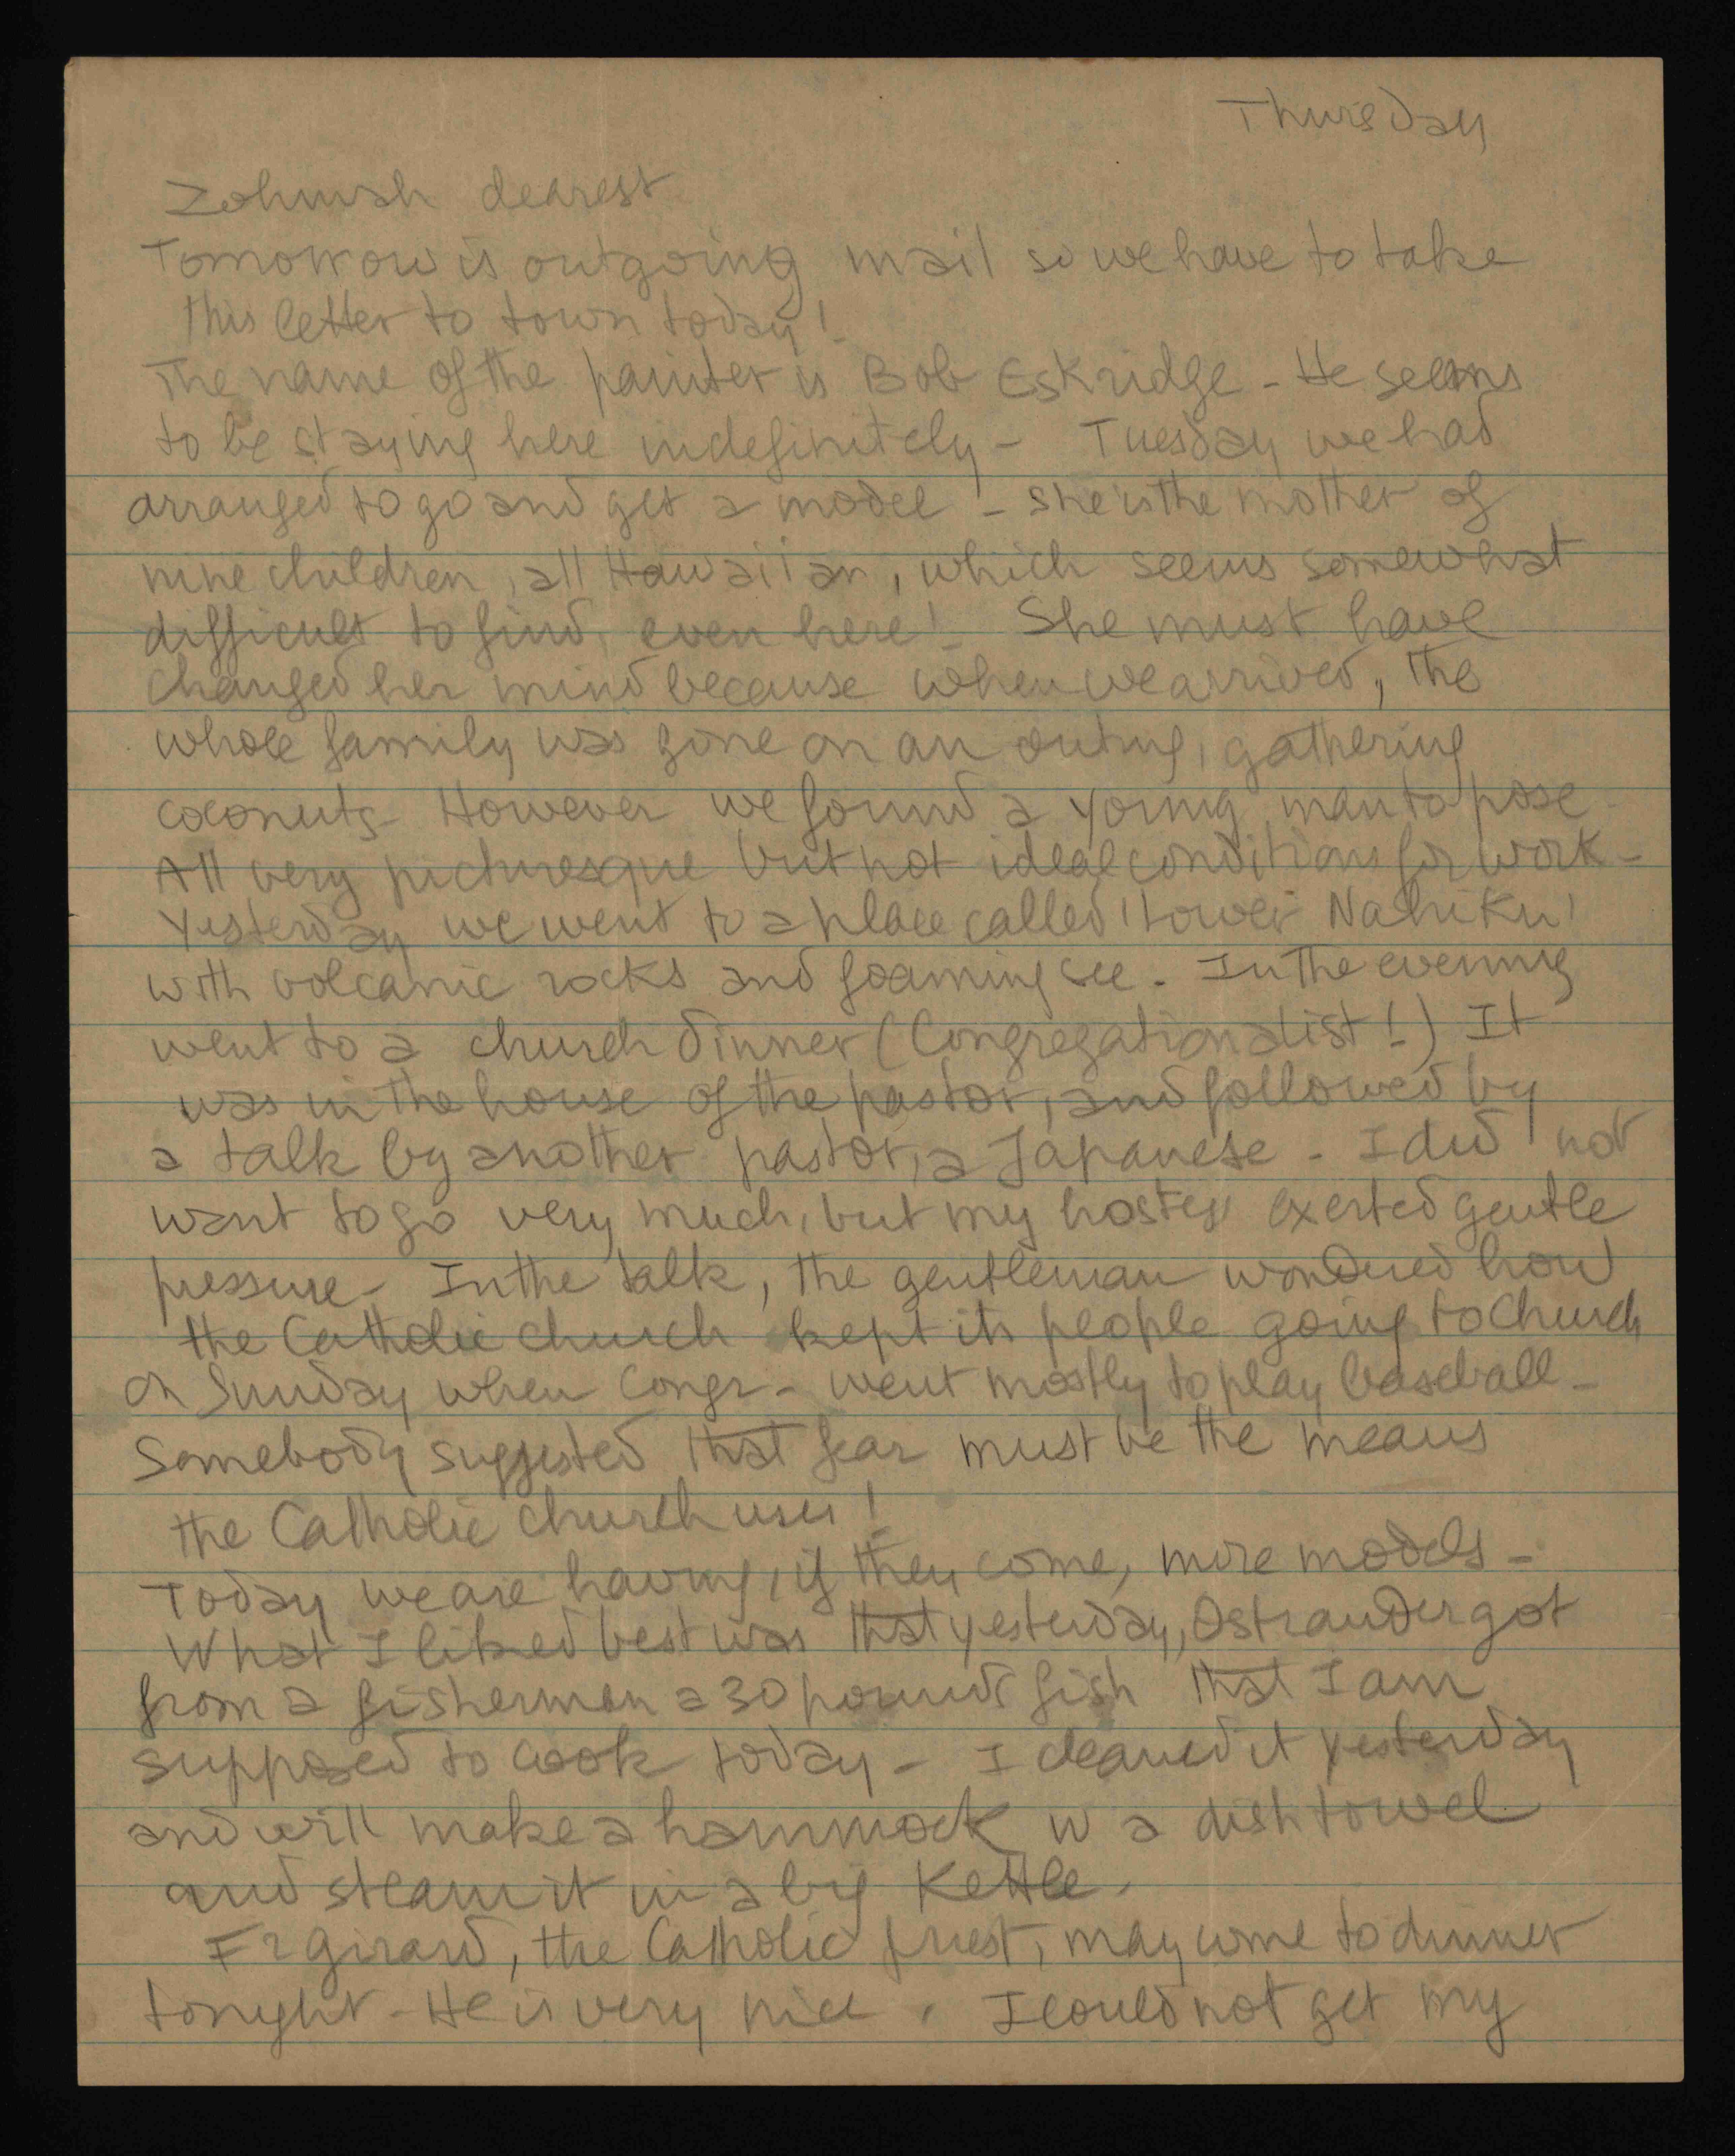 Thursday
Zohmah dearest
Tomorrow is outgoing mail so we have to take
this letter to town today!
The name of the painter is Bob Eskridge - He seems
to be staying here indefinitely - Tuesday we had
arranged to go and get a model - she is the mother of
nine children, all Hawaiian, which seems somewhat
difficult to find, even here! She must have
changed her mind because when we arrived, the
whole family was gone on an outing, gathering
coconuts - However we found a young man to pose.
All very picturesque but not ideal conditions for work -
Yesterday we went to a place called 'Lower Nahiku'
with volcanic rocks and foaming see. In the evening
went to a church dinner (Congregationalist!) It
was in the house of the pastor, and followed by
a talk by another pastor, a Japanese - I did not
want to go very much, but my hostess exerted gentle
pressure - In the talk, the gentleman wondered how
the Catholic church kept its people going to church
on Sunday when Congr - went mostly to play baseball -
Somebody suggested that fear must be the means
the Catholic church uses!
Today we are having, if they come, more models -
What I liked best was that yesterday, Ostrander got
from a fisherman a 30 pound fish that I am
supposed to cook today - I cleaned it yesterday
and will make a hammock w a dish towel
and steam it in a big kettle.
Fr Girard, the Catholic priest, may come to dinner
tonight - He is very nice. I could not get my